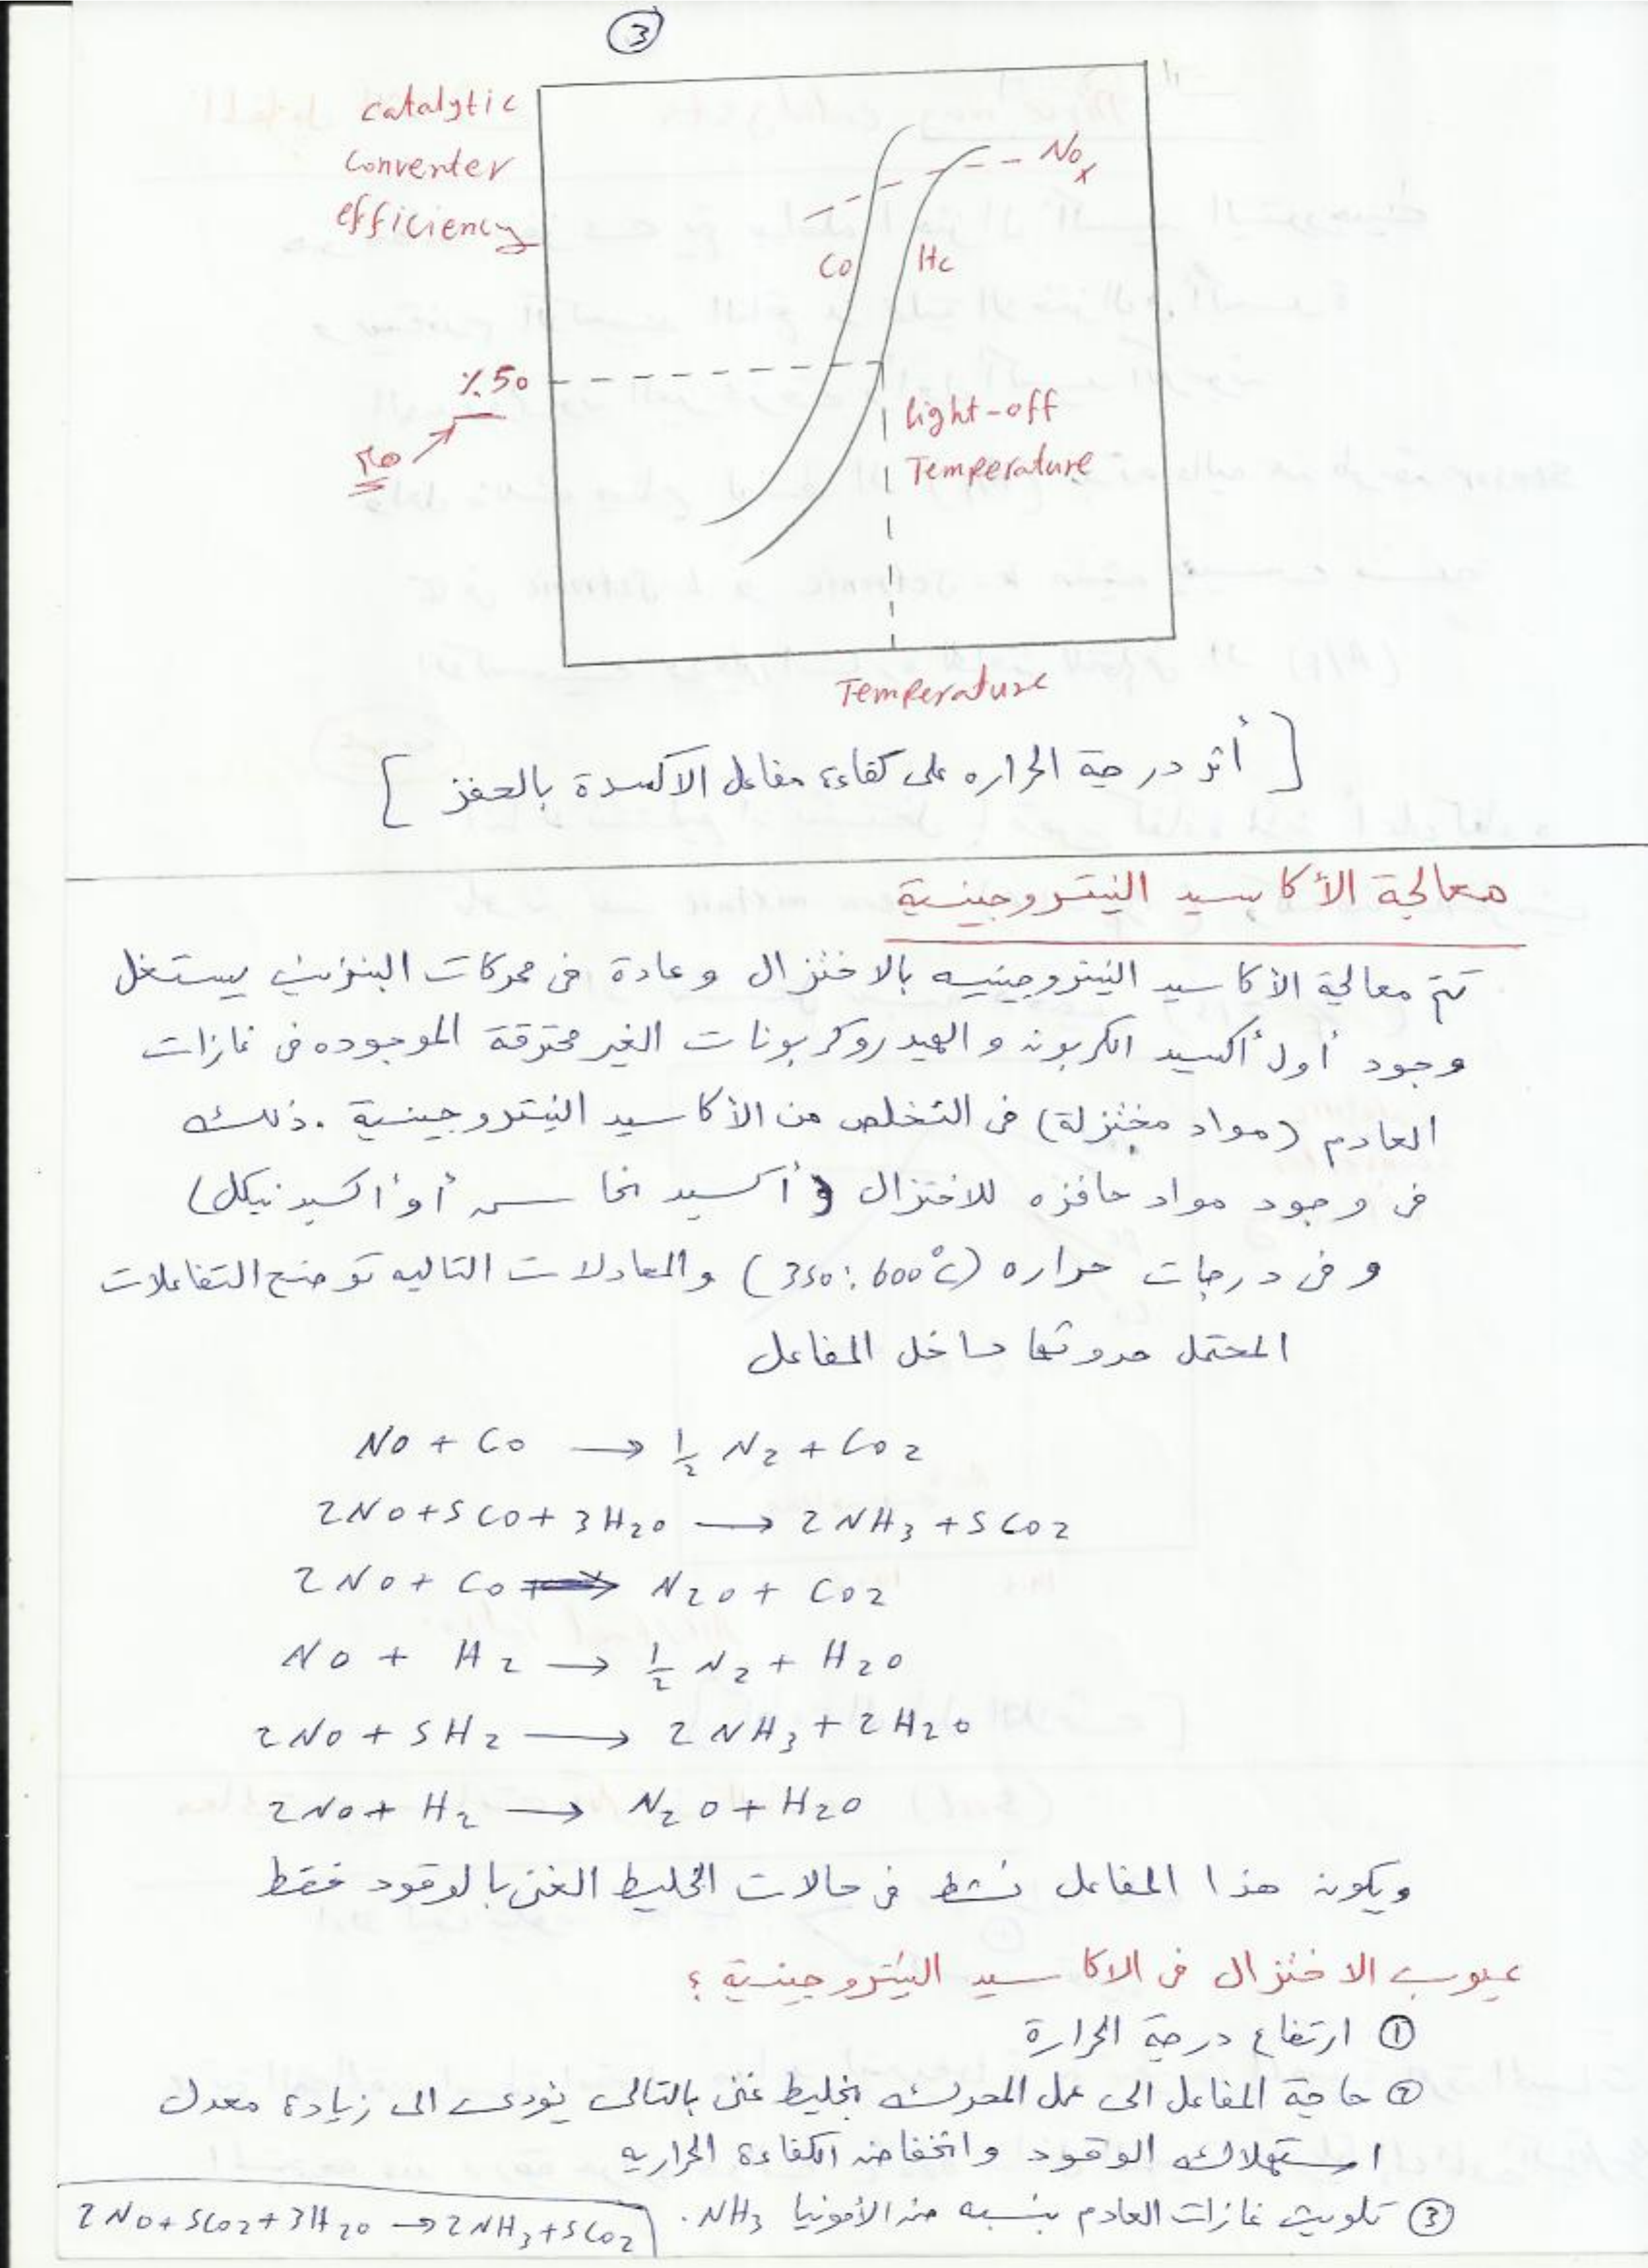 3
catalytic
converter
efficiency
NOx
CO
HC
٪50
light-off
Temperature
Temperature
[أثر درجة الحراره على كفاءة مفاعل الاكسدة بالحفز]
معالجة الأكاسيد النيتروجينية
تتم معالجة الأكاسيد النيتروجينيه بالاختزال وعادة فى محركات البنزين يستغل
وجود أول أكسيد الكربون والهيدروكربونات الغير محترقة الموجوده فى غازات
العادم (مواد مختزلة) فى التخلص من الأكاسيد النيتروجينية . ذلك
فى وجود مواد حافزه للاختزال (أكسيد نحاس أو أكسيد نيكل)
وفى درجات حراره (350:600°C) والمعادلات التاليه توضح التفاعلات
المحتمل حدوثها داخل المفاعل
NO + CO → 1/2 N2 + CO2
2NO + 5CO + 3H2O → 2NH3 + 5CO2
2NO + CO → N2O + CO2
NO + H2 → 1/2 N2 + H2O
2NO + 5H2 → 2NH3 + 2H2O
2NO + H2 → N2O + H2O
ويكون هذا المفاعل نشط فى حالات الخليط الغنى بالوقود فقط
عيوب الاختزال فى الاكاسيد النيتروجينية ؟
① ارتفاع درجة الحرارة
② حاجة المفاعل الى عمل المحرك بخليط غنى بالتالى يؤدى الى زيادة معدل
استهلاك الوقود وانخفاض الكفاءة الحراريه
③ تلويث غازات العادم بنسبه من الأمونيا NH3.
2NO+5CO2+3H2O → 2NH3+5CO2